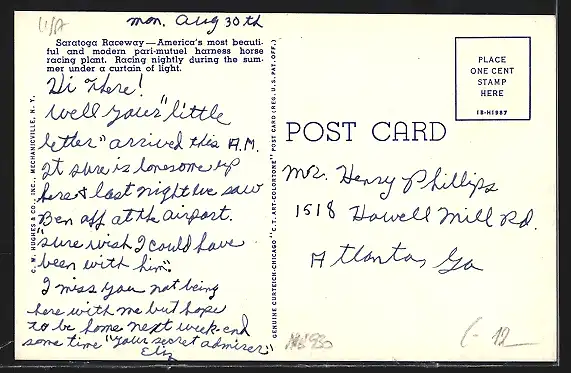 U/A
Mon. Aug 30th
Saratoga Raceway—America's most beauti-
ful and modern pari-mutuel harness horse
racing plant. Racing nightly during the sum-
mer under a curtain of light.
Hi There!
Well your "little
letter" arrived this A.M.
It sure is lonesome up
here & last night we saw
Ben off at the airport.
"Sure wish I could have
been with him".
I miss you not being
here with me but hope
to be home next week-end
some time "Your secret admirer"
Eliz
C. W. HUGHES & CO., INC., MECHANICVILLE, N. Y.
GENUINE CURTEICH-CHICAGO "C.T. ART-COLORTONE" POST CARD (REG. U.S. PAT. OFF.)
PLACE
ONE CENT
STAMP
HERE
1B-H1987
POST CARD
Mr. Henry Phillips
1518 Howell Mill Rd.
Atlanta, Ga